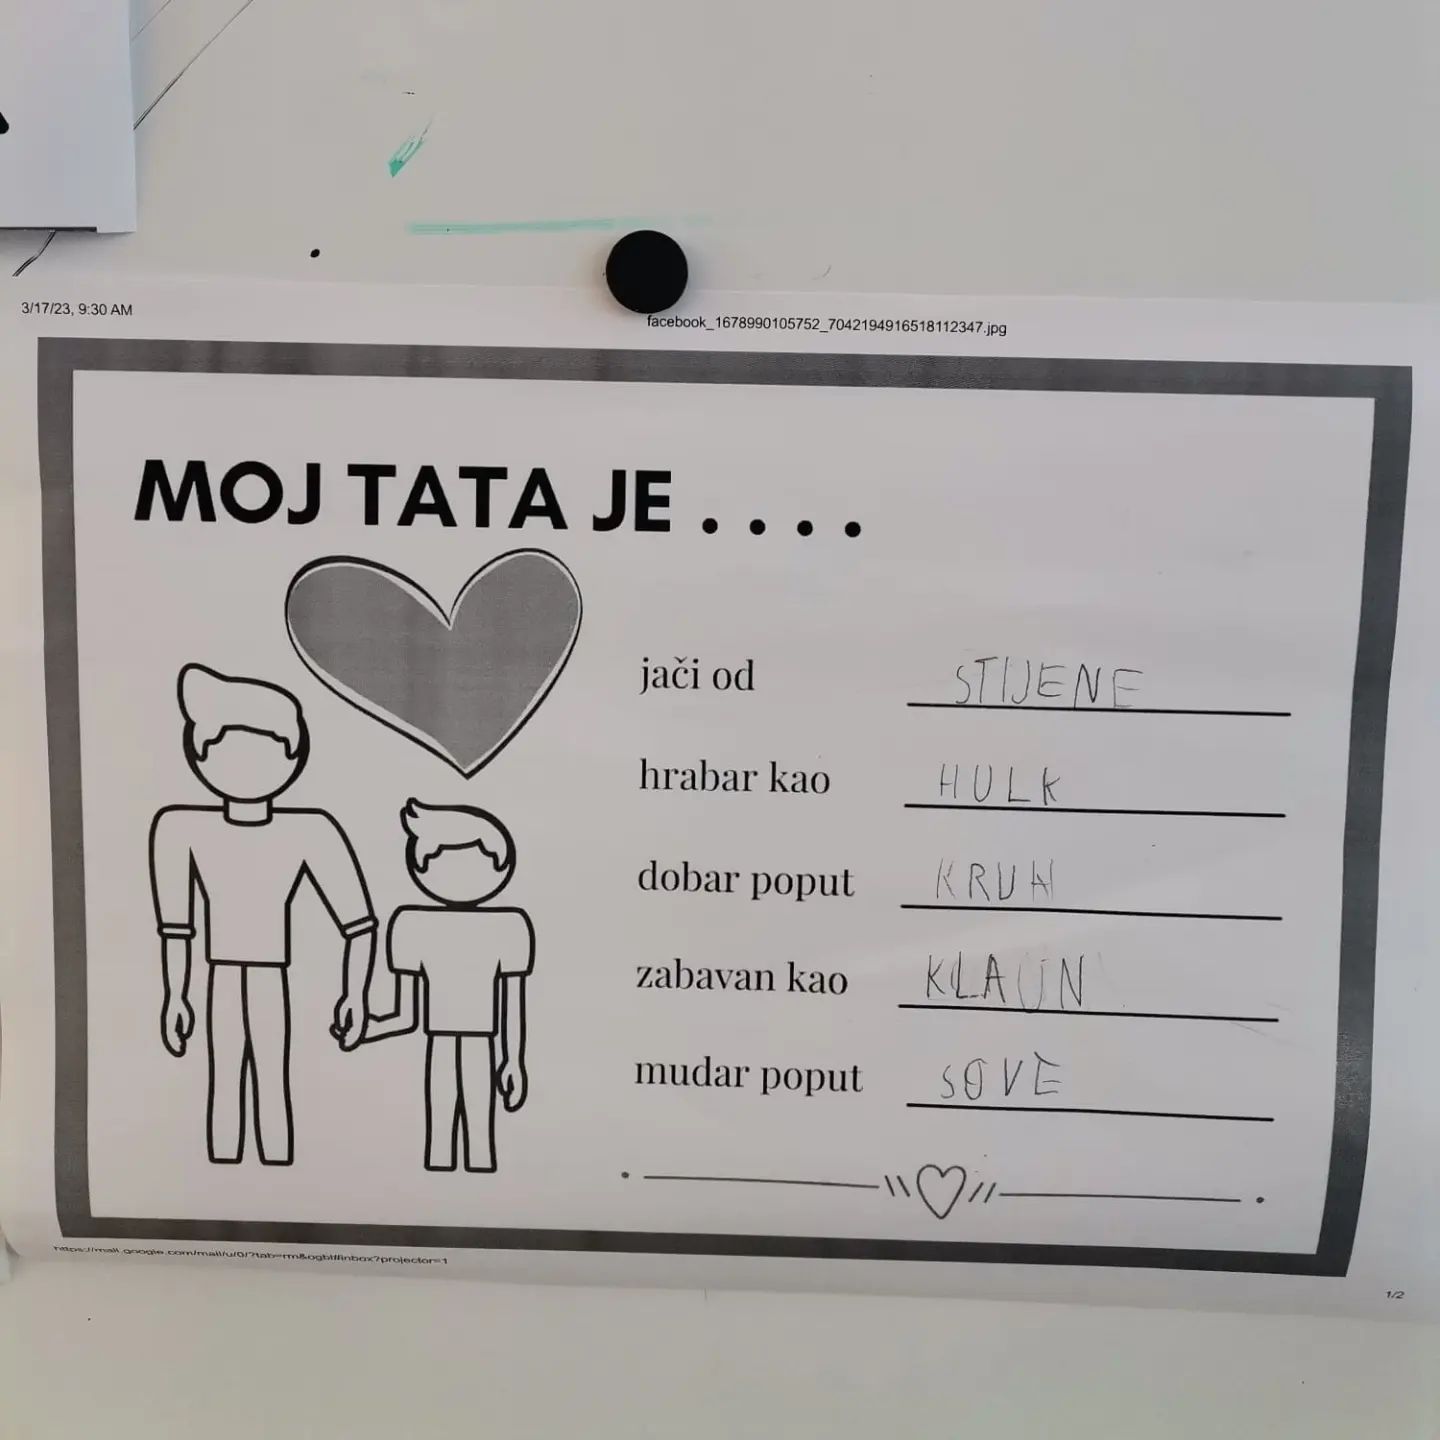 3/17/23, 9:30 AM
facebook_1678990105752_7042194916518112347.jpg
MOJ TATA JE . . . .
jači od STIJENE
hrabar kao HULK
dobar poput KRUH
zabavan kao KLAUN
mudar poput SOVE
https://mail.google.com/mail/u/0/?tab=rm&ogbl#inbox?projector=1
1/2